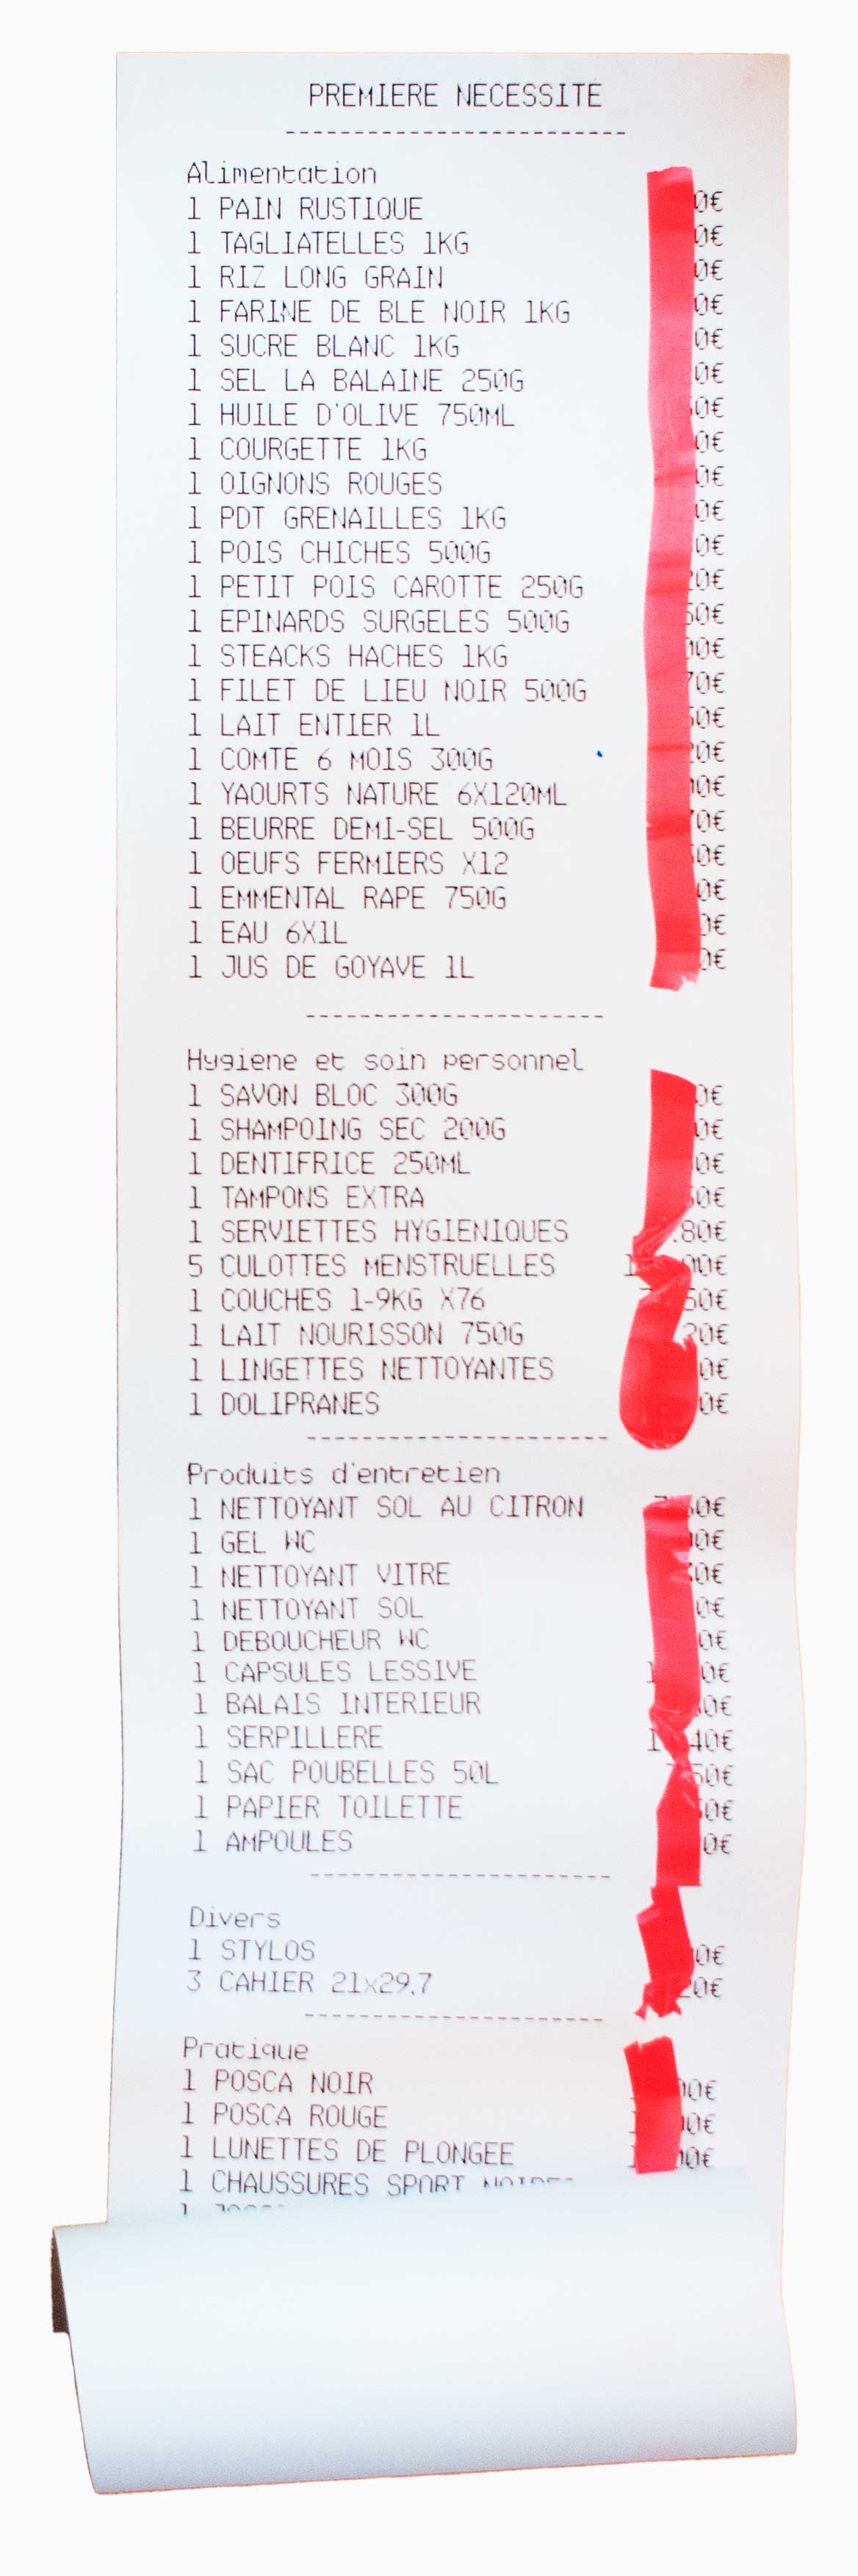 PREMIERE NECESSITE
Alimentation
1 PAIN RUSTIQUE 0€
1 TAGLIATELLES 1KG 0€
1 RIZ LONG GRAIN 0€
1 FARINE DE BLE NOIR 1KG 0€
1 SUCRE BLANC 1KG 0€
1 SEL LA BALAINE 250G 0€
1 HUILE D'OLIVE 750ML 0€
1 COURGETTE 1KG 0€
1 OIGNONS ROUGES 0€
1 PDT GRENAILLES 1KG 0€
1 POIS CHICHES 500G 0€
1 PETIT POIS CAROTTE 250G 0€
1 EPINARDS SURGELES 500G 50€
1 STEACKS HACHES 1KG 00€
1 FILET DE LIEU NOIR 500G 70€
1 LAIT ENTIER 1L 0€
1 COMTE 6 MOIS 300G 20€
1 YAOURTS NATURE 6X120ML 0€
1 BEURRE DEMI-SEL 500G 0€
1 OEUFS FERMIERS X12 0€
1 EMMENTAL RAPE 750G 0€
1 EAU 6X1L 0€
1 JUS DE GOYAVE 1L 0€
Hygiene et soin personnel
1 SAVON BLOC 300G 0€
1 SHAMPOING SEC 200G 0€
1 DENTIFRICE 250ML 0€
1 TAMPONS EXTRA 0€
1 SERVIETTES HYGIENIQUES .80€
5 CULOTTES MENSTRUELLES 00€
1 COUCHES 1-9KG X76 50€
1 LAIT NOURISSON 750G 20€
1 LINGETTES NETTOYANTES 0€
1 DOLIPRANES 0€
Produits d'entretien
1 NETTOYANT SOL AU CITRON 0€
1 GEL WC 0€
1 NETTOYANT VITRE 0€
1 NETTOYANT SOL 0€
1 DEBOUCHEUR WC 0€
1 CAPSULES LESSIVE 0€
1 BALAIS INTERIEUR 0€
1 SERPILLERE 40€
1 SAC POUBELLES 50L 50€
1 PAPIER TOILETTE 0€
1 AMPOULES 0€
Divers
1 STYLOS 0€
3 CAHIER 21x29,7 20€
Pratique
1 POSCA NOIR 00€
1 POSCA ROUGE 0€
1 LUNETTES DE PLONGEE 00€
1 CHAUSSURES SPORT
1